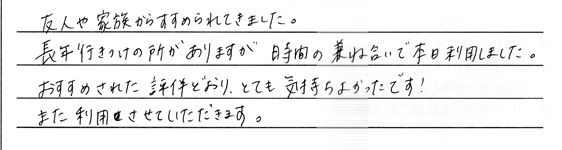 友人や家族からすすめられてきました。
長年行きつけの所がありますが 時間の兼ね合いで本日利用しました。
おすすめされた 評伴どおり、とても 気持ちよかったです!
また利用させていただきます。